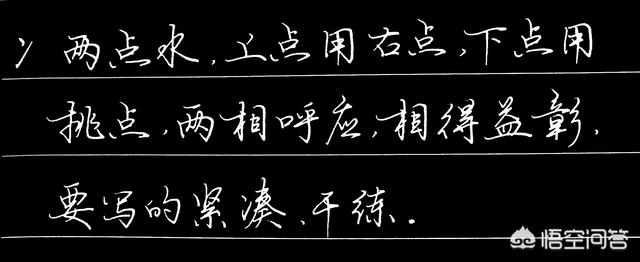 冫两点水,上点用右点,下点用
挑点,两相呼应,相得益彰,
要写的紧凑、干练.
悟空问答